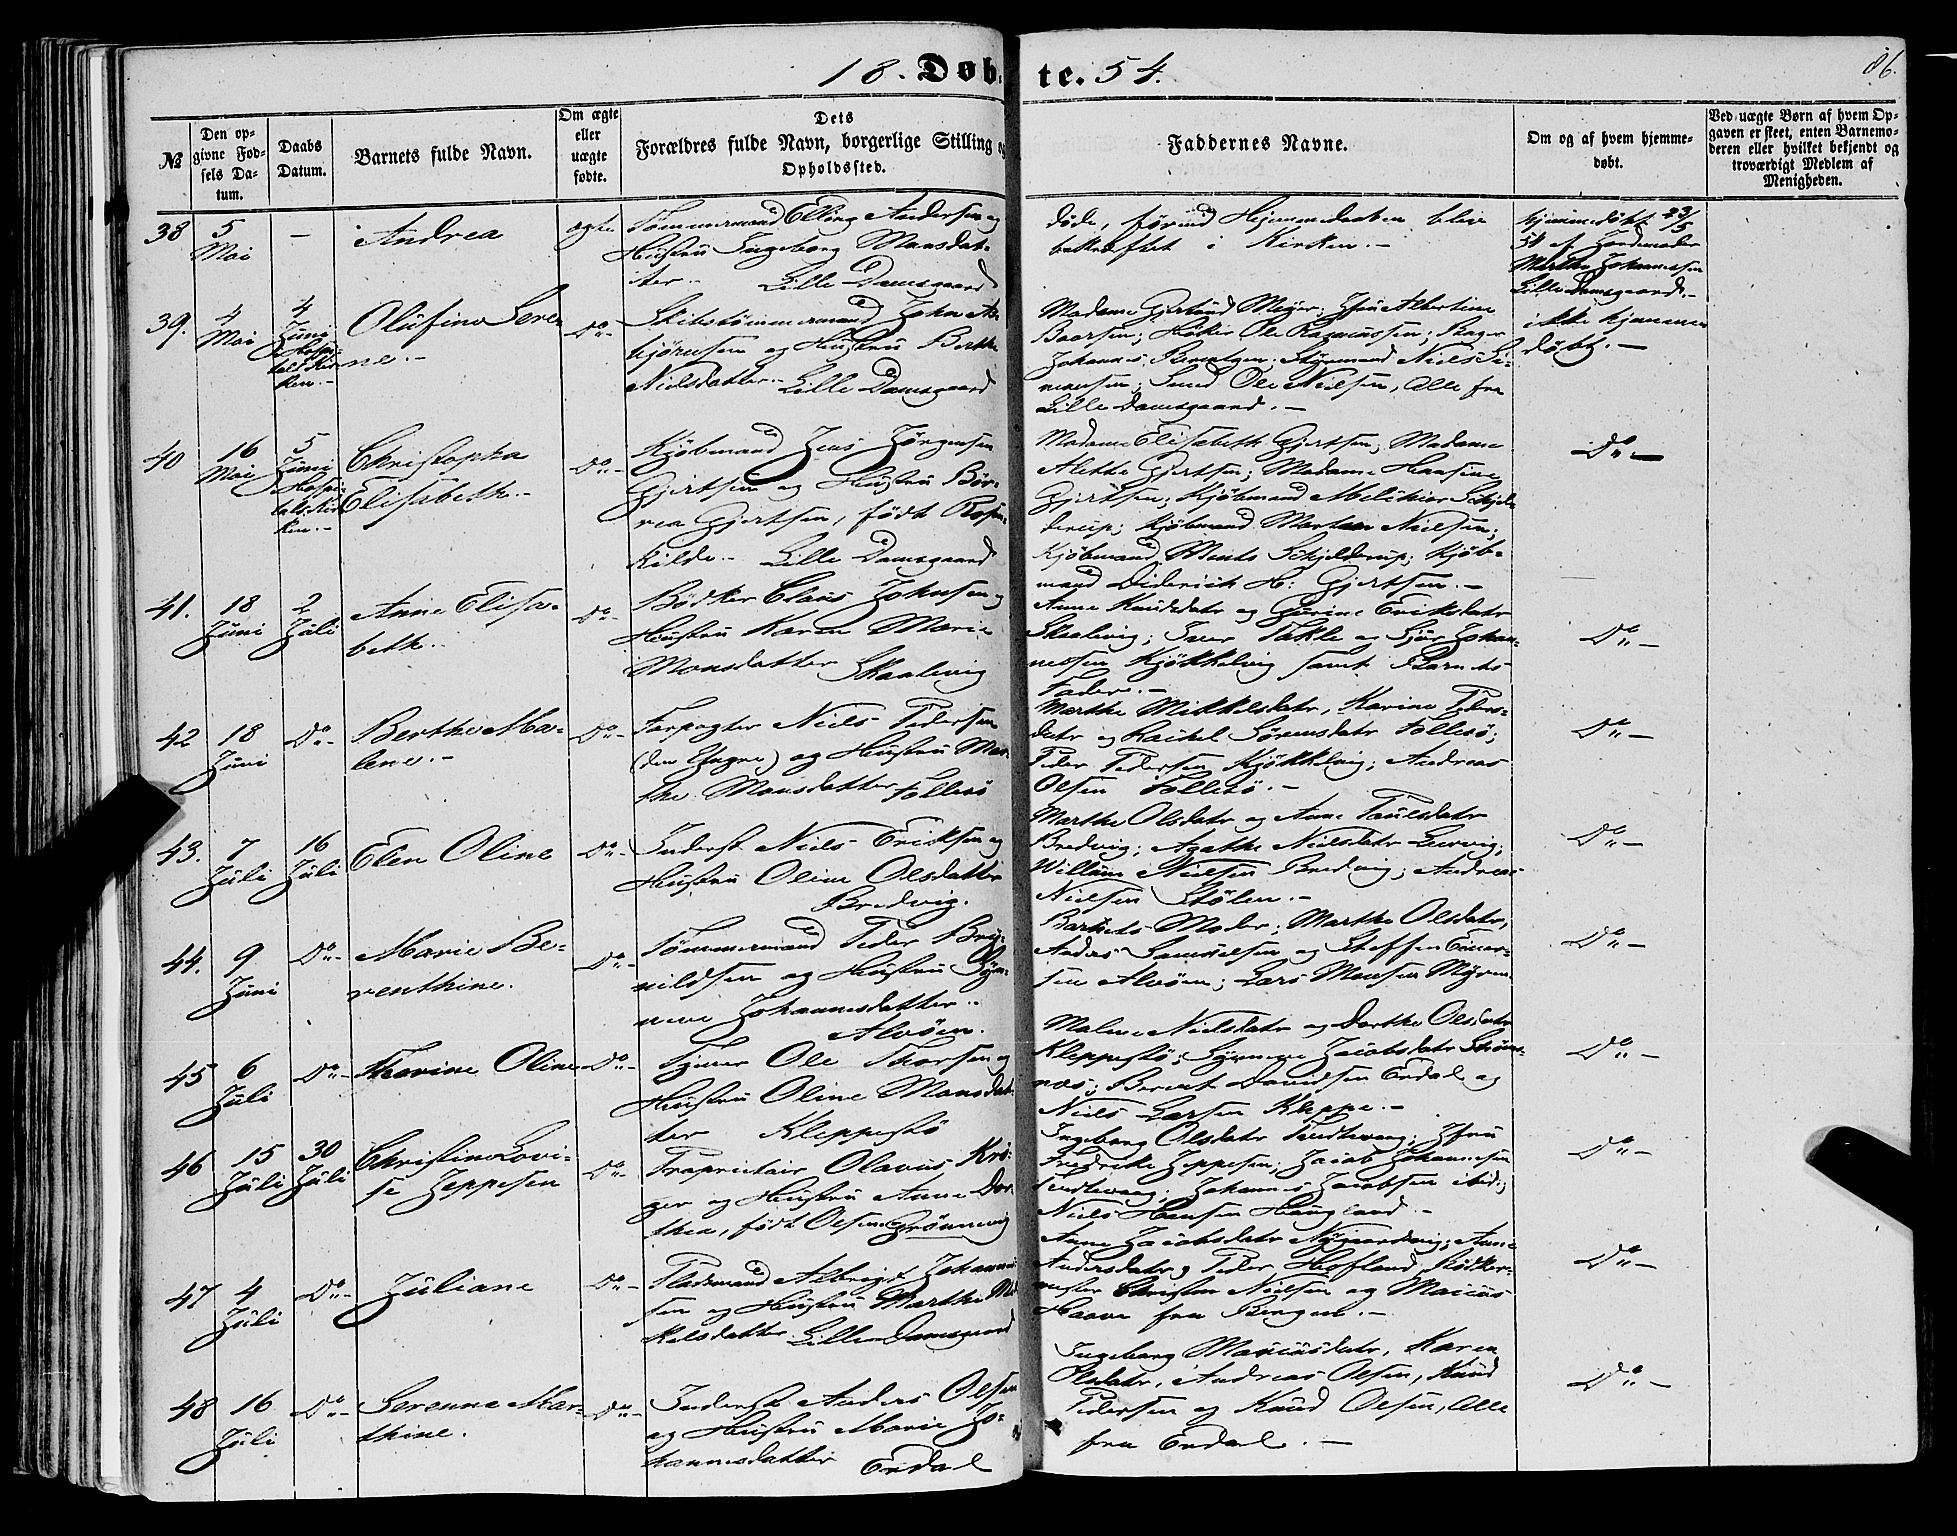 18. Døb-
te. 54.
86.
№
Den op-
givne Fød-
sels Da-
tum.
Daabs
Datum.
Barnets fulde Navn.
Om ægte
eller
uægte
fødte.
Dets
Forældres fulde Navn, borgerlige Stilling og
Opholdssted.
Faddernes Navne.
Om og af hvem hjemme-
døbt.
Ved uægte Børn af hvem Op-
gaven er skeet, enten Barnemo-
deren eller hvilket bekjendt og
troværdigt Medlem af
Menigheden.
38
5
Mai
—
Andrea
ægte
Tømmermand Elling Andersen og
Hustru Ingeborg Monsdat-
ter..
Lille Damsgaard
døde, førend Hjemmedaaben blev
bekræftet i Kirken. -
hjemmedøbt 23/5
54 af Jordemoder
Marthe Johannessen
Lille Damsgaard. -
39.
4
Mai
4
Juni
Hospi-
talskir-
ken. -
Olufine Sere-
ne. -
Do -
Skibstømmermand John As-
bjørnsen og Hustru Berthe
Nielsdatter. Lille Damsgaard
Madame Gjertrud Meyer; Jfru Albertine
Baarsen; Høker Ole Rasmussen; Bager
Johannes Berntzen, Styrmand Niels Si-
monsen; Smed Ole Nielsen, alle fra
Lille Damsgaard. -
ikke hjemme-
døbt. -
40
16
Mai
5
Juni
Hospi-
talskir-
ken. -
Christopha
Elisabeth. -
Do -
Kjøbmand Jens Jørgensen
Gjertsen og Hustru Bør-
rea Gjertsen, født Rosen-
kilde. - Lille Damsgaard
Madame Elisabeth Gjertsen; Madame
Alette Gjertsen; Madame Hansine
Gjertsen; Kjøbmand Melchior Schjel-
derup; Kjøbmand Martin Nielsen;
Kjøbmand Schjelderup; Kjøb-
mand Diderich H: Gjertsen. -
Do -
41.
18
Juni
2
Juli
Anne Elisa-
beth.
Do -
Bødker Claus Johnsen og
Hustru Karen Marie
Monsdatter Skaalevig
Anne Knudsdatr og Gurine Eriksdatr
Skaalevig; Iver Takle og Sjur Johan-
nessen Kjøkkelvig samt Barnets
Fader. -
Do -
42
18
Juni
Do -
Berthe Ma-
lene. -
Do -
Forpagter Niels Pedersen
(den Yngre) og Hustru Mar-
the Monsdatter Follesø
Marthe Mikkelsdatr, Karine Peders-
datr og Rachel Sørensdatr Follesø;
Peder Pedersen Kjøkkelvig; Andreas
Olsen Follesø. -
Do -
43.
7
Juli
16
Juli
Elen Oline
Do -
Inderst Niels Eriksen og
Hustru Oline Olsdatter
Bredvig.
Marthe Olsdatr og Anne Paulsdatr
Bredvig; Agathe Nielsdatr Leirvig;
Willum Nielsen Bredvig; Andreas
Nielsen Stølen. -
Do -
44.
9
Juni
Do -
Marie Be-
renthine.
Do -
Tømmermand Peder Bry-
nildsen og Hustru Syn-
neve Johannesdatter..
Alvøen.
Barnets Moder; Marthe Olsdatr,
Anders Samuelsen og Steffen Einer-
sen Alvøen; Lars Monsen Myren.
Do -
45
6
Juli
Do -
Thorine Oline
Do -
Ole Thorsen og
Hustru Oline Monsdat-
ter Kleppestø
Malene Nielsdatr og Dorthe Olsdatr
Kleppestø; Synneve Jacobsdatr Strøm-
næs; Berent Davidsen Erdal og
Niels Larsen Kleppe. -
Do -
46
15
Juli
30
Juli
Christine Lovi-
se Jeppesen
Do -
Proprietair Olavus Krø-
ger og Hustru Anne Dor-
thea, født Olsen Grønnevig
Ingeborg Olsdatr; Jfru
Fredrikke Jeppesen; Jacob Johannesen
; Johannes Jacobsen ibid;
Niels Hansen Haugland. -
Do -
47
4
Juli
Do -
Juliane
Do -
Pladsmand Albrigt Johanne-
sen og Hustru Marthe Mi-
kelsdatter. Lille Damsgaard
Anne Jacobsdatr Nygaardsvig; Anne
Andersdatr og Peder Hofland, Bødker-
mester Christen Nielsen og Marcus
Haave fra Bergen. -
Do -
48
16
Juli
Do -
Serenne Mar-
thine.
Do -
Inderst Anders Olsen
og Hustru Marie Jo-
hannesdatter Erdal
Ingeborg Marcusdatr, Karen
Olsdatr, Andreas Olsen, Knud
Pedersen og Knud Olsen, alle
fra Erdal. -
Do -